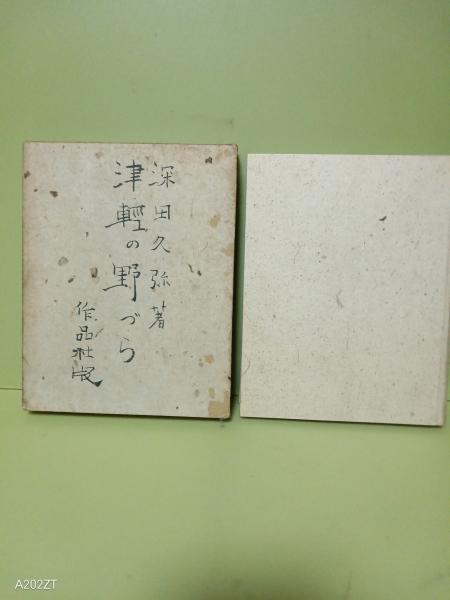 深田久弥著
津輕の野づら
作品社版
A202ZT